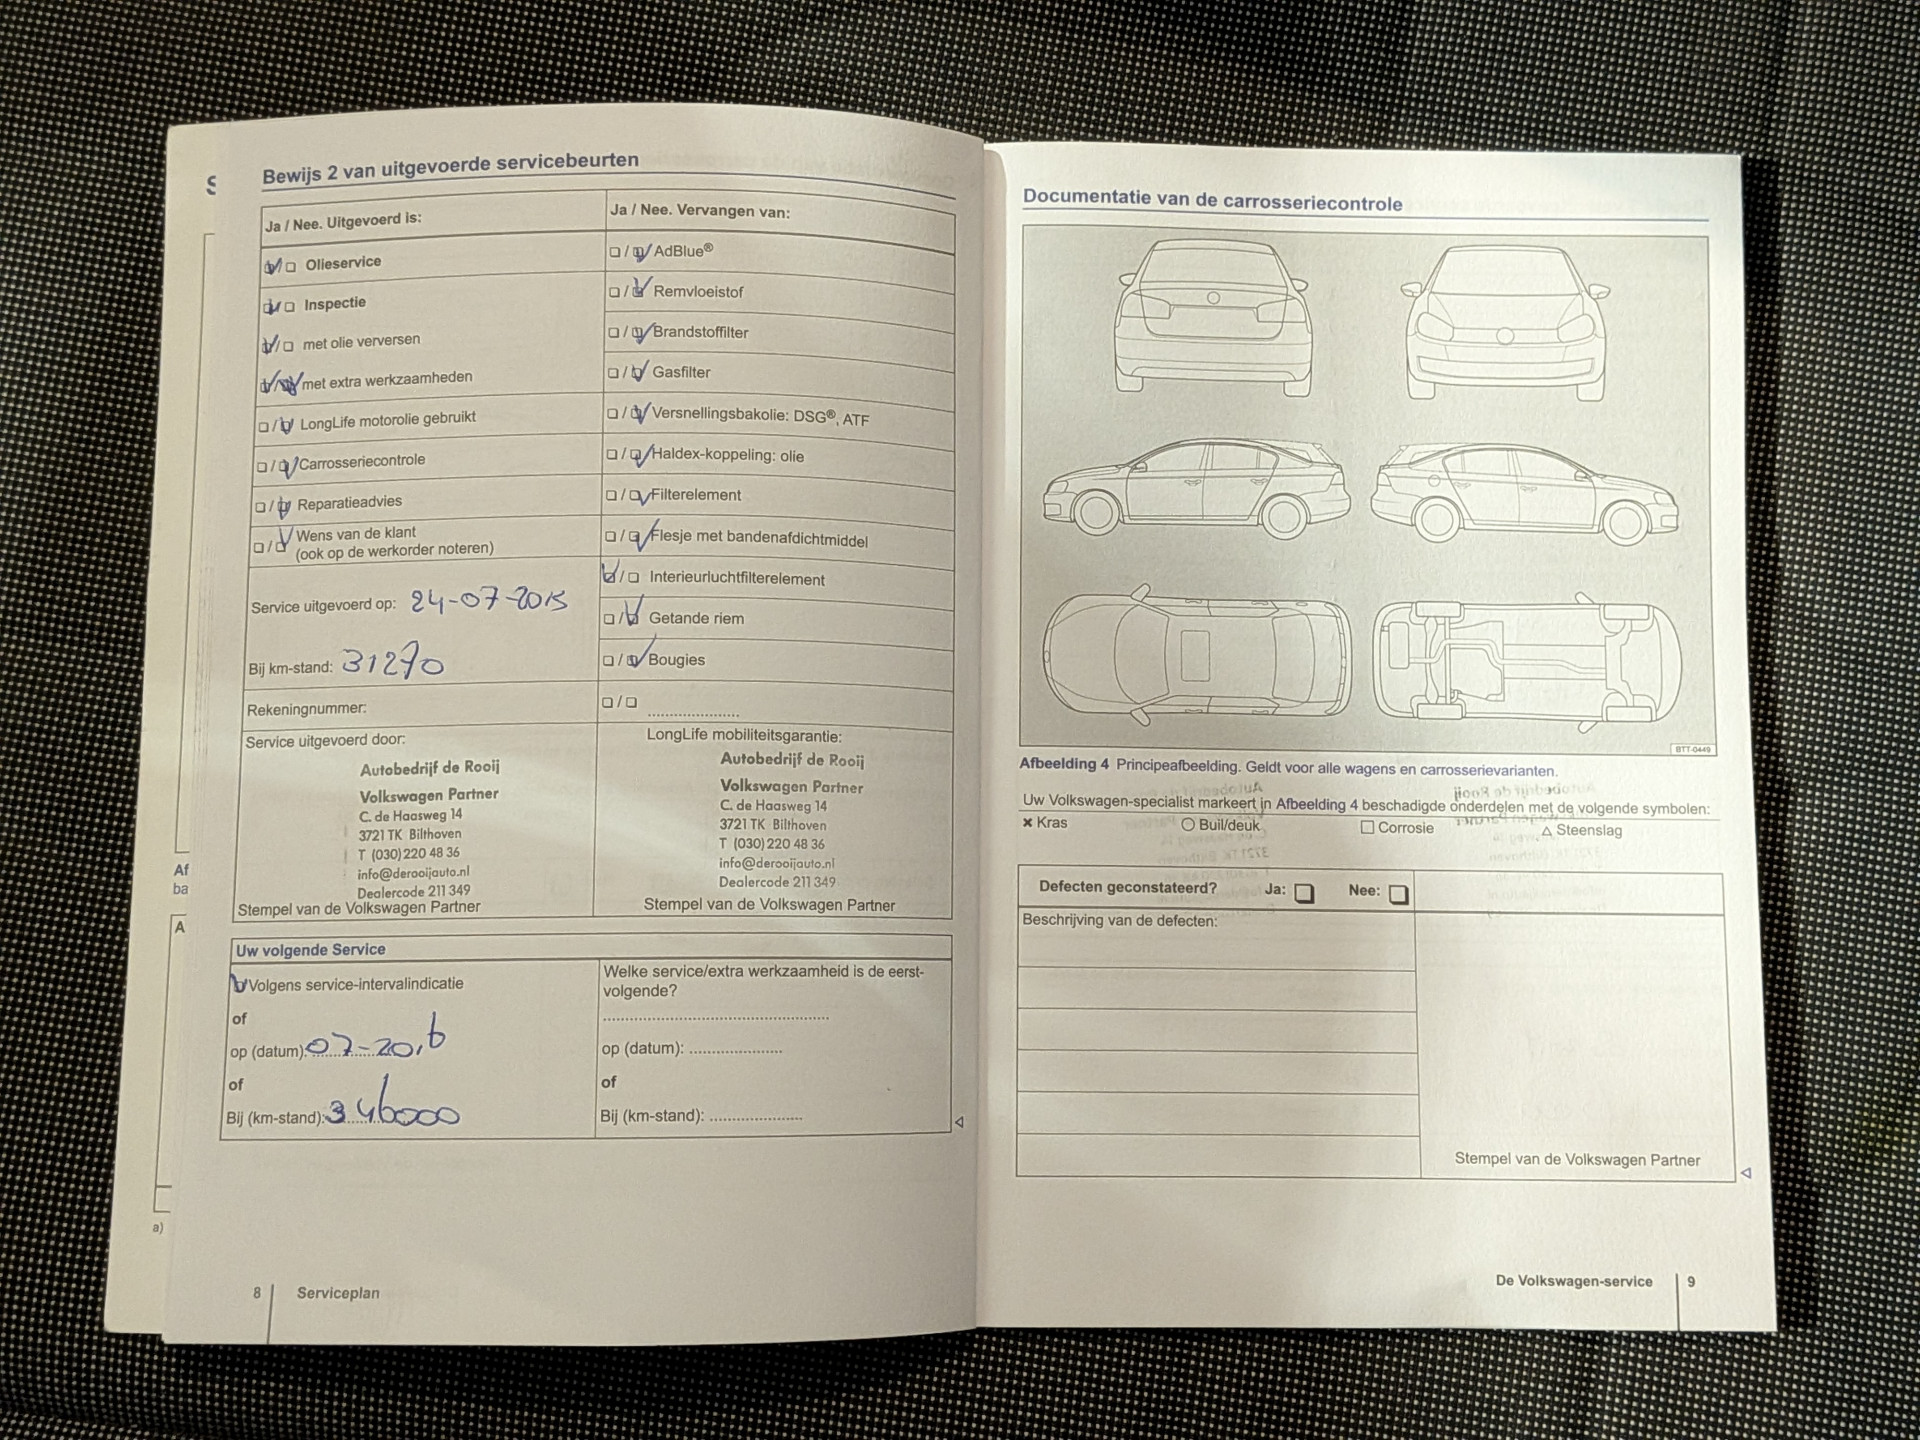 S
Af
ba
A
a)
Bewijs 2 van uitgevoerde servicebeurten
Ja / Nee. Uitgevoerd is:
Olieservice
Inspectie
met olie verversen
met extra werkzaamheden
LongLife motorolie gebruikt
Carrosseriecontrole
Reparatieadvies
Wens van de klant
(ook op de werkorder noteren)
Service uitgevoerd op: 24-07-2015
Bij km-stand: 31270
Rekeningnummer:
Ja / Nee. Vervangen van:
AdBlue®
Remvloeistof
Brandstoffilter
Gasfilter
Versnellingsbakolie: DSG®, ATF
Haldex-koppeling: olie
Filterelement
Flesje met bandenafdichtmiddel
Interieurluchtfilterelement
Getande riem
Bougies
....................
Service uitgevoerd door:
Autobedrijf de Rooij
Volkswagen Partner
C. de Haasweg 14
3721 TK Bilthoven
T (030) 220 48 36
info@derooijauto.nl
Dealercode 211 349
Stempel van de Volkswagen Partner
LongLife mobiliteitsgarantie:
Autobedrijf de Rooij
Volkswagen Partner
C. de Haasweg 14
3721 TK Bilthoven
T (030) 220 48 36
info@derooijauto.nl
Dealercode 211 349
Stempel van de Volkswagen Partner
Uw volgende Service
Volgens service-intervalindicatie
of
op (datum): 07-2016
of
Bij (km-stand):
Welke service/extra werkzaamheid is de eerst-
volgende?
op (datum): .....................
of
Bij (km-stand): .....................
8 Serviceplan
Documentatie van de carrosseriecontrole
BTT-0449
Afbeelding 4 Principeafbeelding. Geldt voor alle wagens en carrosserievarianten.
Uw Volkswagen-specialist markeert in Afbeelding 4 beschadigde onderdelen met de volgende symbolen:
× Kras ○ Buil/deuk □ Corrosie △ Steenslag
Defecten geconstateerd? Ja: Nee:
Beschrijving van de defecten:
Stempel van de Volkswagen Partner
De Volkswagen-service 9